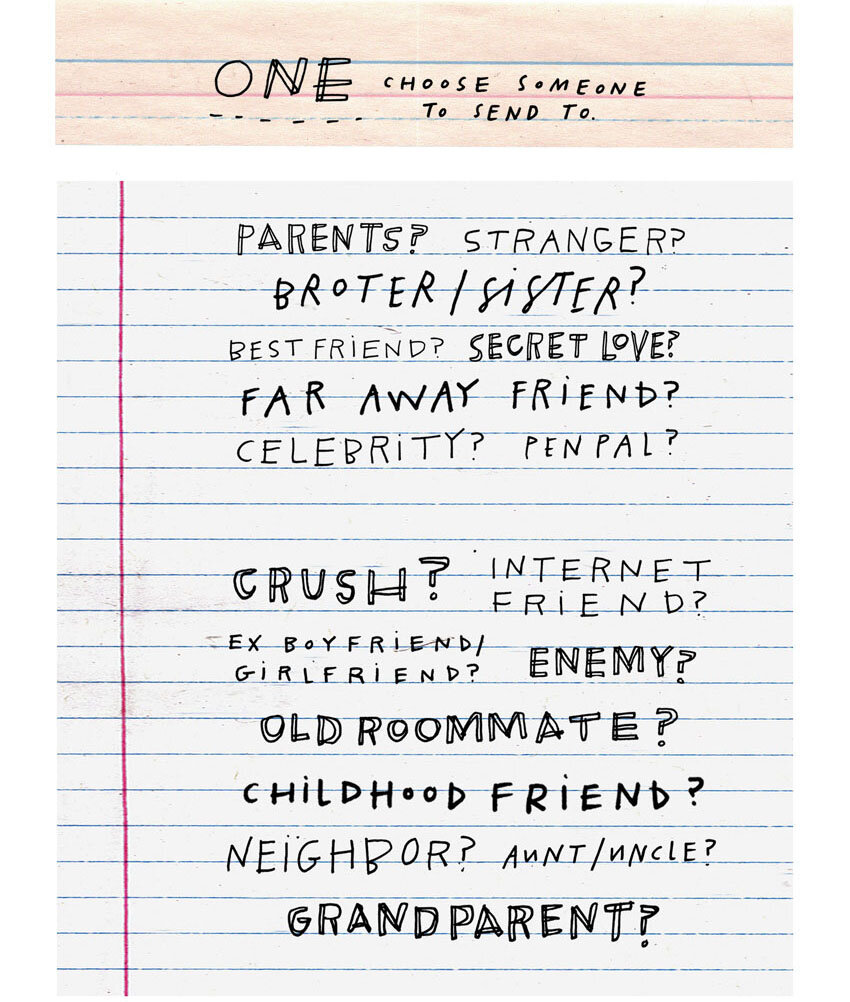 ONE CHOOSE SOMEONE
TO SEND TO.
PARENTS? STRANGER?
BROTER/SISTER?
BEST FRIEND? SECRET LOVE?
FAR AWAY FRIEND?
CELEBRITY? PEN PAL?
CRUSH? INTERNET
FRIEND?
EX BOYFRIEND/
GIRLFRIEND? ENEMY?
OLD ROOMMATE?
CHILDHOOD FRIEND?
NEIGHBOR? AUNT/UNCLE?
GRANDPARENT?